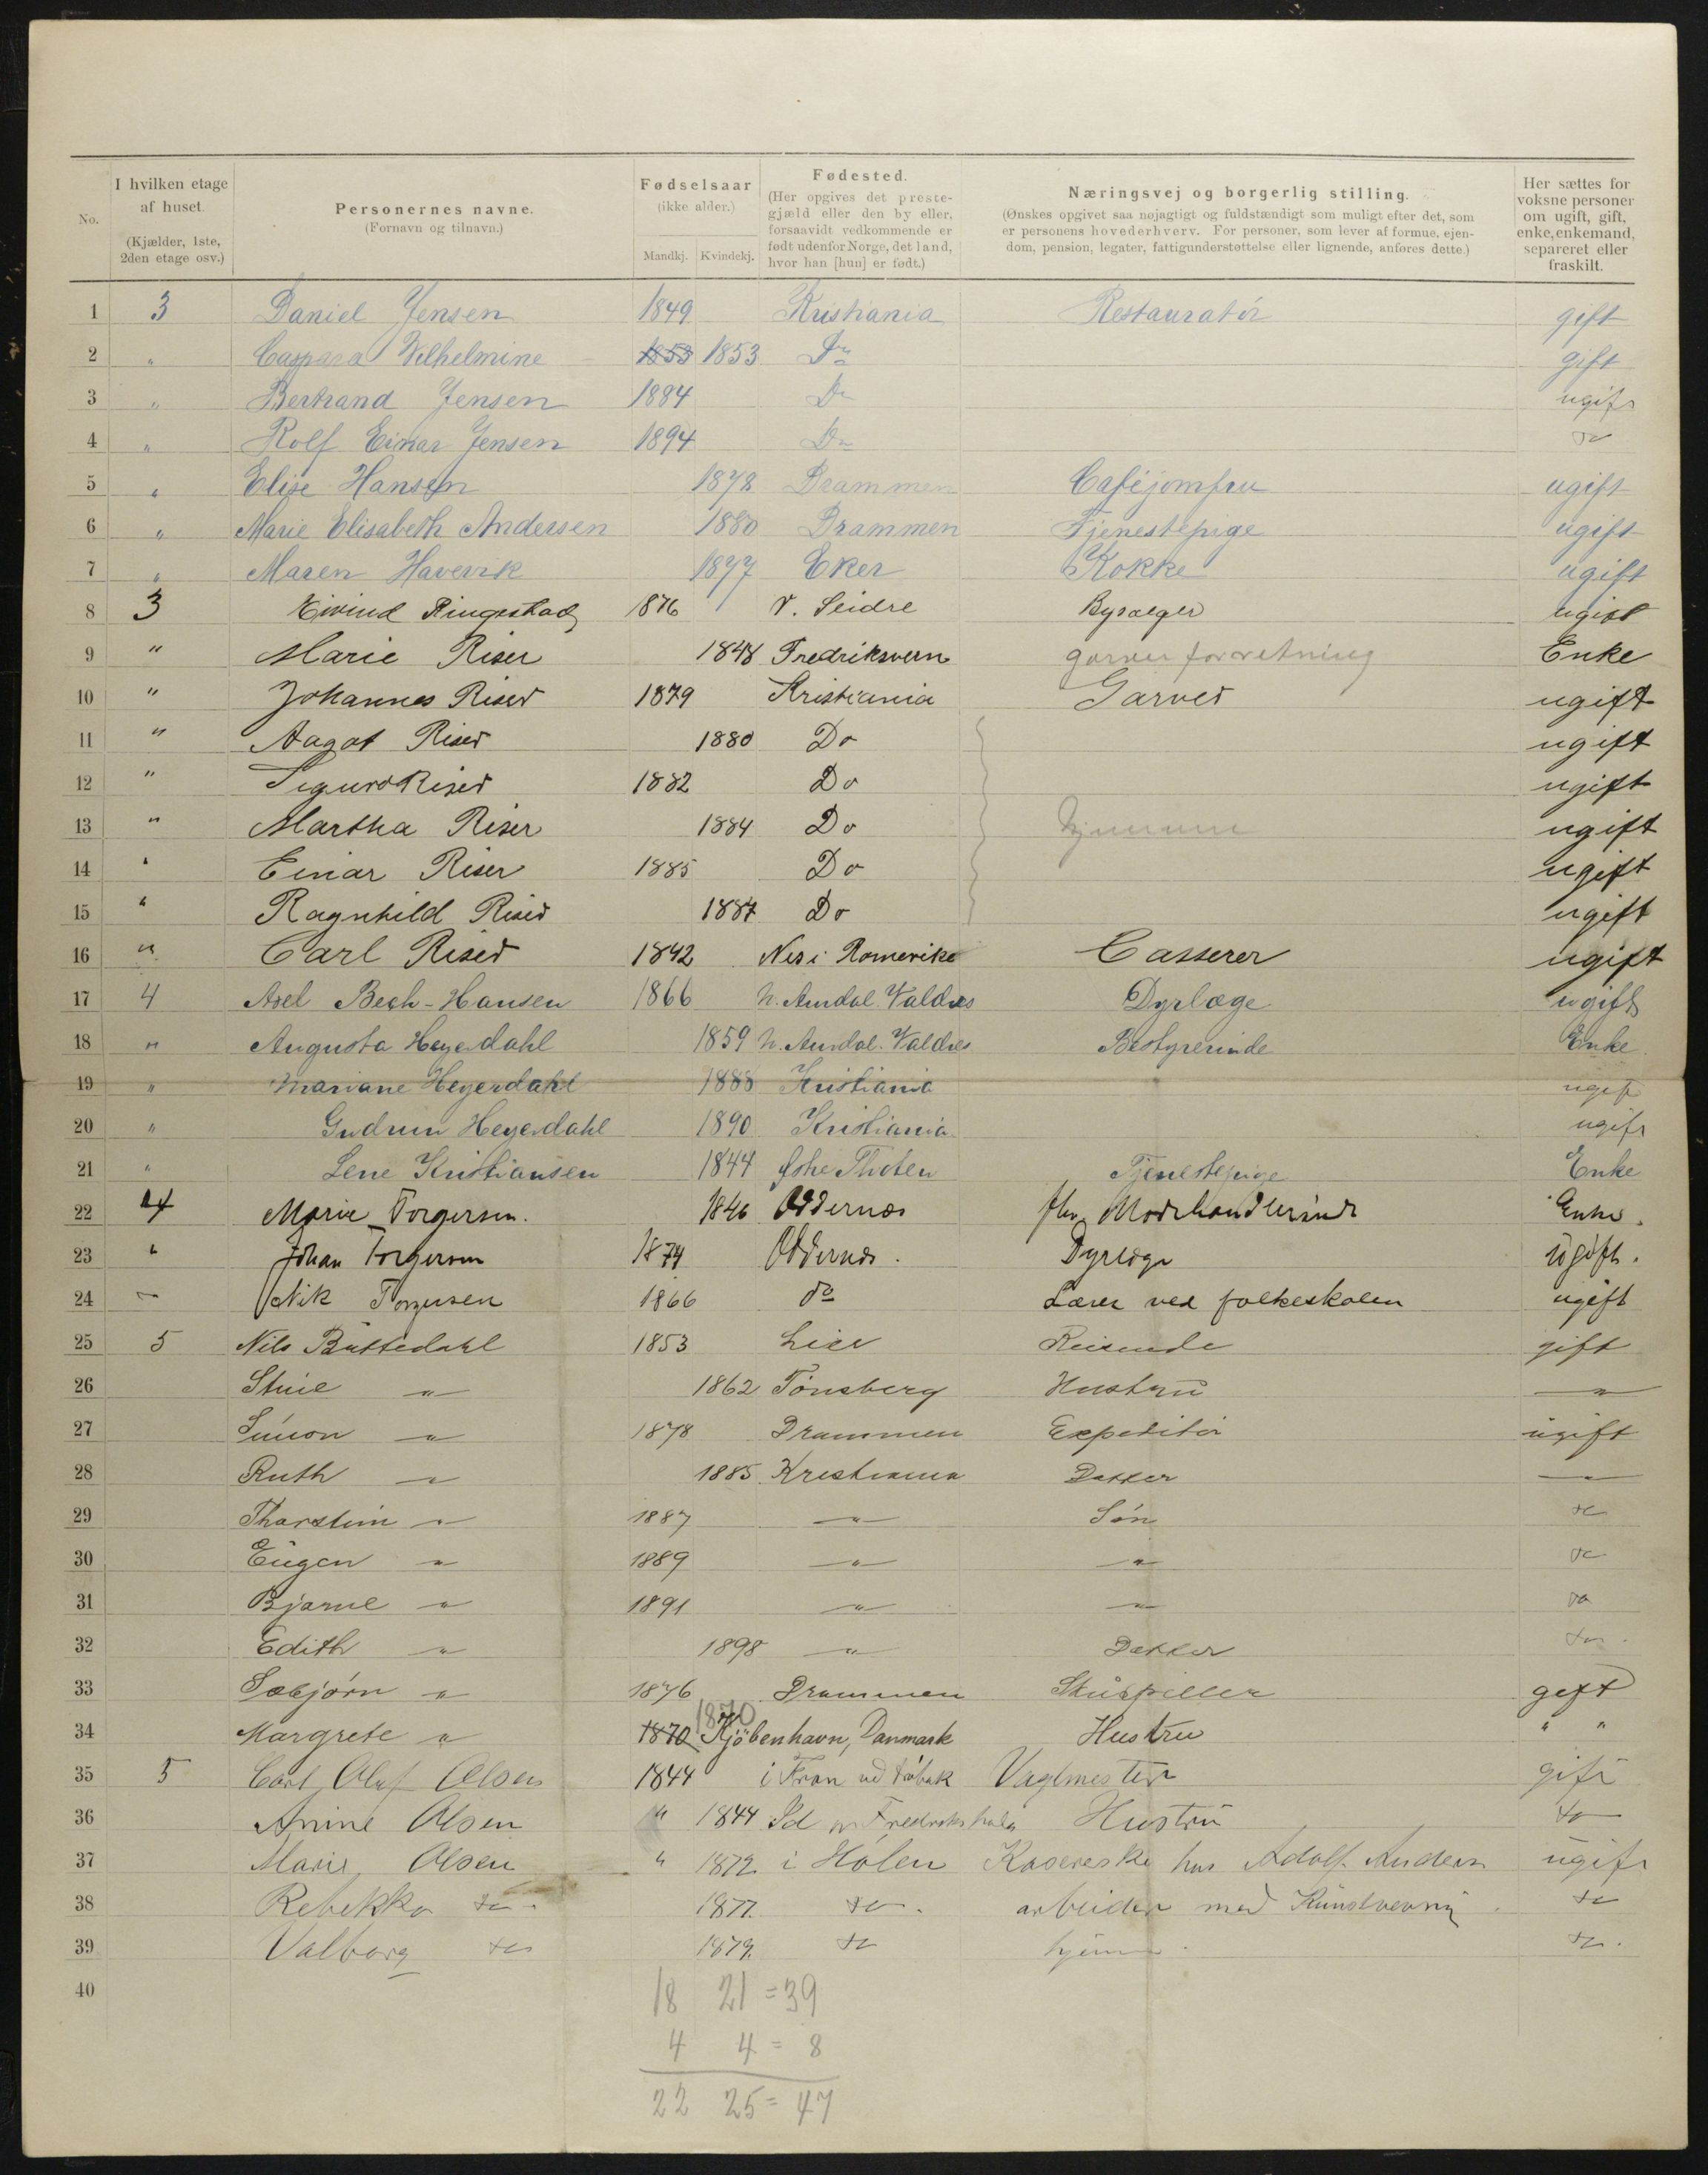 No.
I hvilken etage af huset. (Kjælder, 1ste, 2den etage osv.)
Personernes navne. (Fornavn og tilnavn.)
Fødselsaar (ikke alder.)
Mandkj. Kvindekj.
Fødested. (Her opgives det prestegjæld eller den by eller, forsaavidt vedkommende er født udenfor Norge, det land, hvor han [hun] er født.)
Næringsvej og borgerlig stilling. (Ønskes opgivet saa nøjagtigt og fuldstændigt som muligt efter det, som er personens hovederhverv. For personer, som lever af formue, ejendom, pension, legater, fattigunderstøttelse eller lignende, anføres dette.)
Her sættes for voksne personer om ugift, gift, enke, enkemand, separeret eller fraskilt.
1 3 Daniel Jensen 1849 Kristiania Restauratör gift
2 " Caspara Vilhelmine 1853 1853 Do gift
3 " Bertrand Jensen 1884 Do ugift
4 " Rolf Einar Jensen 1894 Do do
5 " Elise Hansen 1878 Drammen Caféjomfru ugift
6 " Marie Elisabeth Andersen 1880 Drammen Tjenestepige ugift
7 " Maren Havervik 1877 Eker Kokke ugift
8 3 Eivind Ringestad 1876 V. Slidre ugift
9 " Marie Riser 1848 Fredriksvern garver forretning Enke
10 " Johannes Riser 1879 Kristiania Garver ugift
11 " Aagot Riser 1880 Do ugift
12 " Sigurd Riser 1882 Do ugift
13 " Martha Riser 1884 Do hjemme ugift
14 " Einar Riser 1885 Do ugift
15 " Ragnhild Riser 1887 Do ugift
16 " Carl Riser 1842 Nes i Romerike Casserer ugift
17 4 Axel Bech-Hansen 1866 N. Aurdal. Valdres Dyrlæge ugift
18 " Augusta Heyerdahl 1859 N. Aurdal. Valdres Bestyrerinde Enke
19 " Mariane Heyerdahl 1888 Kristiania ugift
20 " Gudrun Heyerdahl 1890 Kristiania ugift
21 " Lene Kristiansen 1844 Østre Thoten Tjenestepige Enke
22 4 Marie Torgersen. 1846 Oddernes fhv. Modehandlerinde Enke.
23 " Johan Torgersen 1874 Oddernes. Dyrlæge ugift.
24 " Nik Torgersen 1866 do Lærer ved folkeskolen ugift
25 5 Nils Buttedahl 1853 Lier Reisende gift
26 " 1862 Tönsberg Hustru "
27 Simon " 1878 Drammen Expeditör ugift
28 Ruth " 1885 Kristiania Datter "
29 Thorstein " 1887 " Sön do
30 Eugen " 1889 " " do
31 Bjarne " 1891 " " do
32 Edith " 1898 " Datter do
33 Sæbjörn " 1876 Drammen Skuespiller gift
34 Margrete " 1870 1870 Kjöbenhavn, Danmark Hustru " "
35 5 Carl Oluf Olsen 1844 Vagtmester gift
36 Anine Olsen " 1844 Id Fredrikshald Hustru do
37 Marie Olsen " 1872 i Hölen hos Adolf Andersen ugift
38 Rebekka do 1877. do. arbeider med Kunstvevning. do
39 Valborg do 1879. do hjemme. do.
40
18 21 = 39
4 4 = 8
22 25 = 47